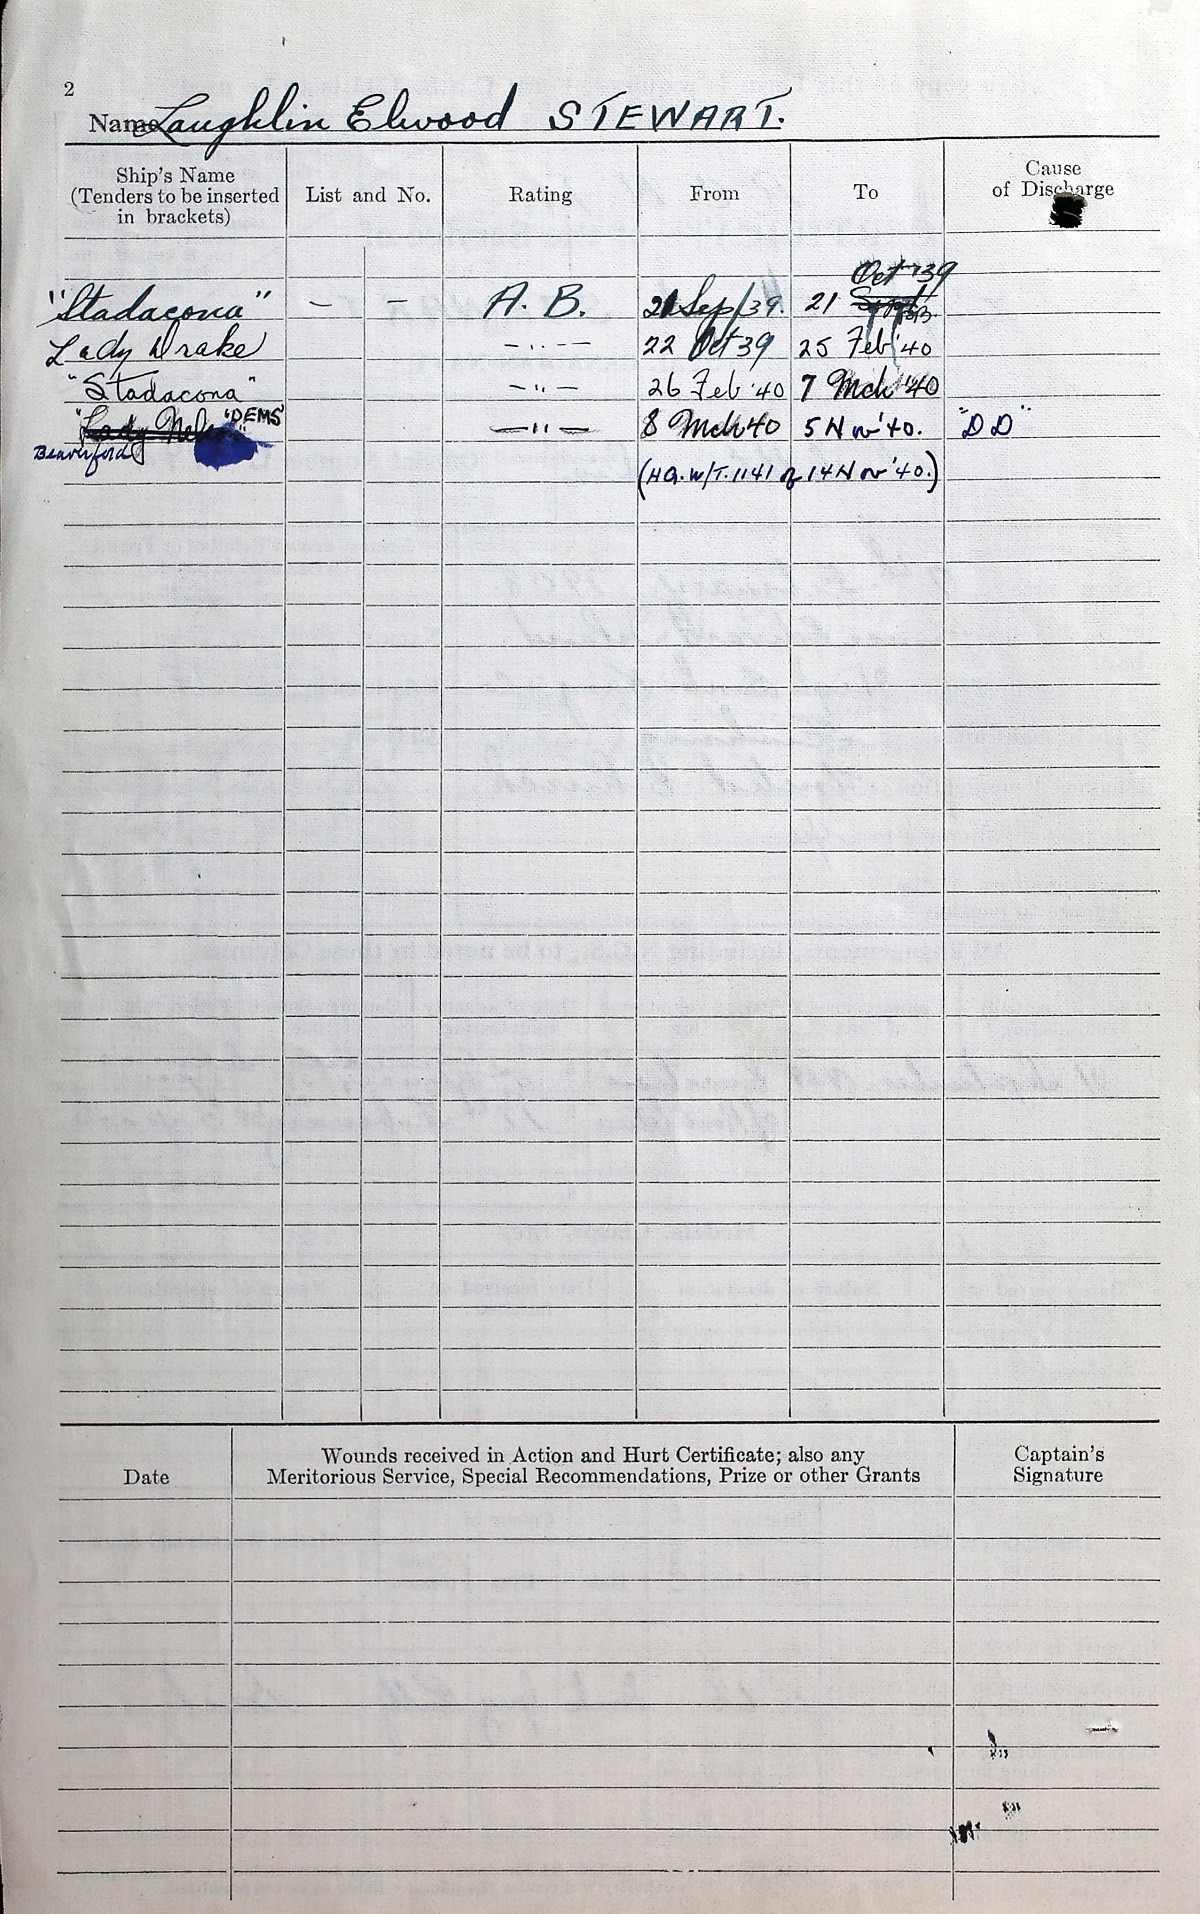 2
Name Laughlin Elwood STEWART.
Ship's Name
(Tenders to be inserted
in brackets)
List and No.
Rating
From
To
Cause
of Discharge
Oct '39
"Stadacona" — — A. B. 21 Sep/39. 21 Sept
Lady Drake —"— 22 Oct 39 25 Feb '40
"Stadacona" —"— 26 Feb '40 7 Mch '40
"Lady Nelson" "DEMS" —"— 8 Mch 40 5 Nov '40. "DD"
Beaverford
(HQ. W/T. 1141 of 14 Nov '40.)
Date
Wounds received in Action and Hurt Certificate; also any
Meritorious Service, Special Recommendations, Prize or other Grants
Captain's
Signature